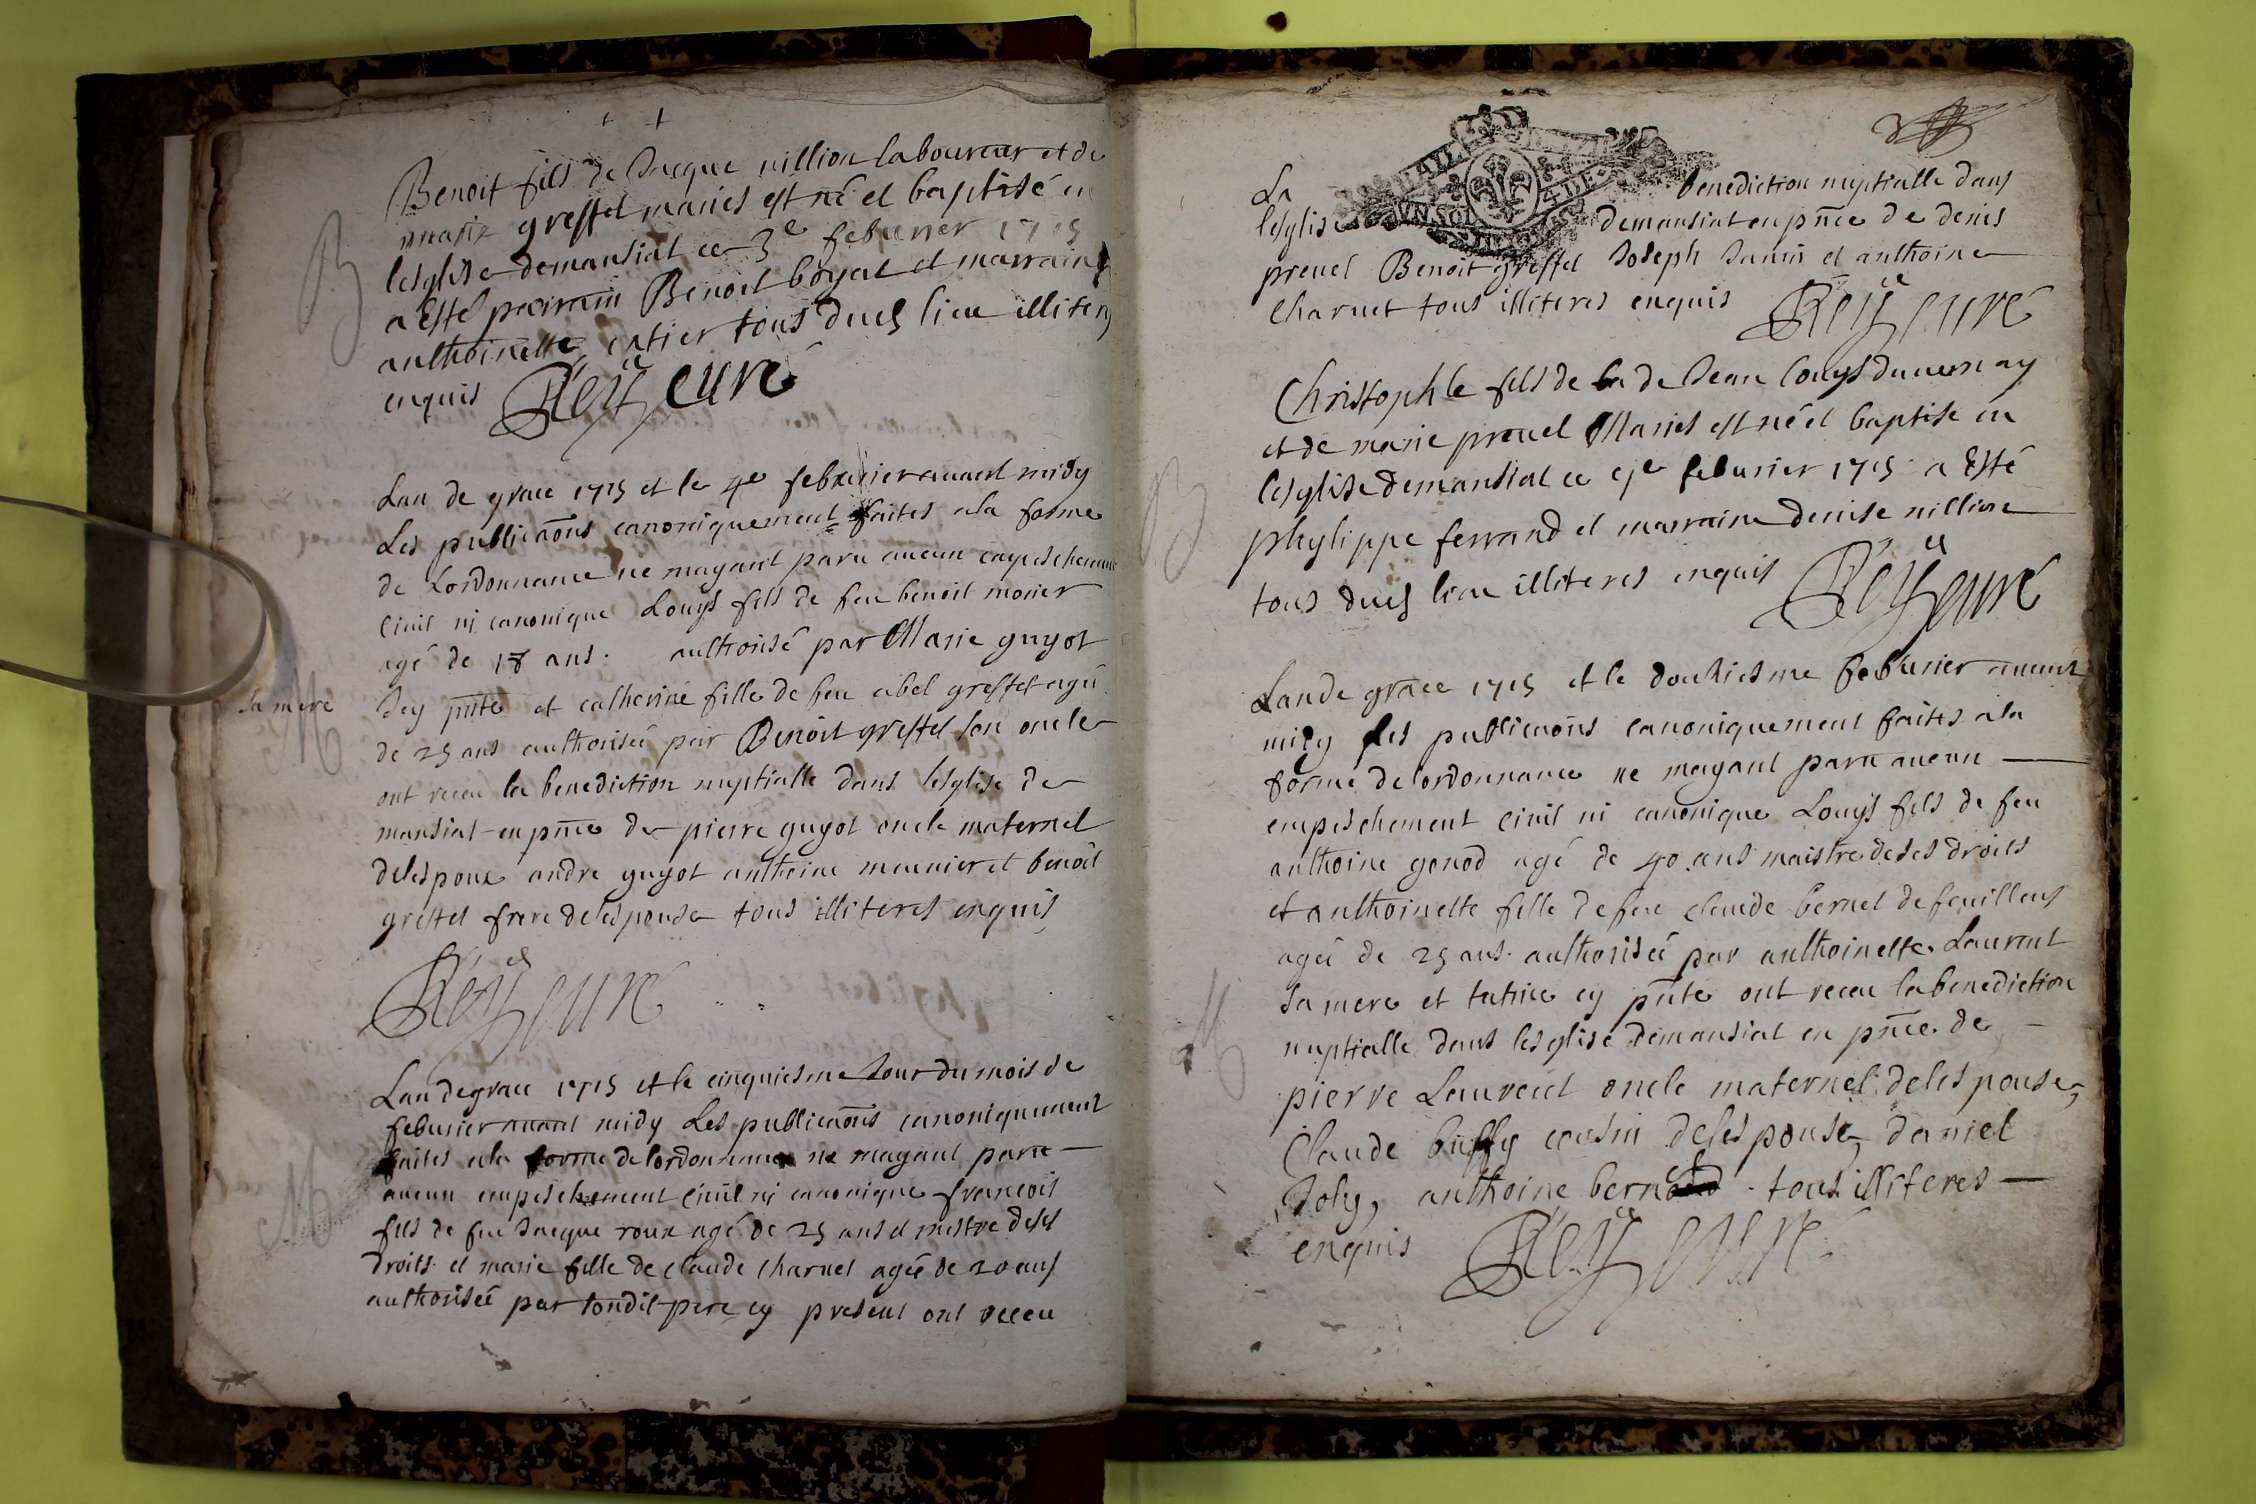 B
Benoit fils de Jacque nillion laboureur et de
marie greffet mariés est né et baptisé en
lesglise demansiat ce 3e feburier 1715
a Esté parrain Benoit boyat et marraine
anthoinette catier tous dud lieu illiteres
enquis Rëÿ curé
Lan de grace 1715 et le 4e feburier avant midy
Les publicaons canoniquement faites ala forme
de Lordonnance ne mayant paru aucun empeschement
civil ni canonique Louys fils de feu benoit monier
agé de 18 ans. authorisé par Marie guyot
sa mere
M
Icy pnte et catherine fille de feu abel greffet agée
de 25 ans authorisée par Benoit greffet son oncle
ont receu la benediction nuptialle dans lesglise de
mansiat en pnce de pierre guyot oncle maternel
delespoux andre guyot anthoine meunier et benoit
greffet frere delespouse tous illiteres enquis
Rëÿ curé
M
Lan de grace 1715 et le cinquiesme Jour du mois de
feburier avant midy Les publicaons canoniquement
faites ala forme de lordonnance ne mayant paru
aucun empeschement civil ni canonique francois
fils de feu Jacque roux agé de 25 ans et mestre deses
droits et marie fille de claude charuet agée de 20 ans
authorisée par sondit pere cy present ont receu
La benediction nuptialle dans
lesglise demansiat en pnce de denis
preuel Benoit greffet Joseph Janin et anthoine
charuet tous illiteres enquis Rëÿ curé
B
Christophle fils de de Jean Louys duuernay
et de marie preuel Mariés est né et baptisé en
lesglise demansiat ce feburier 1715 a Esté
phylippe ferrand et marraine denise nillion
tous dud lieu illiteres enquis Rëÿ curé
Lan de grace 1715 et le douziesme feburier avant
midy les publicaons canoniquement faites ala
forme de lordonnance ne mayant paru aucun
empeschement civil ni canonique Louys fils de feu
anthoine gonod agé de 40 ans maistre deses droits
et anthoinette fille de feu claude bernet de feuillens
agée de 25 ans. authorisée par anthoinette Laurent
M
sa mere et tutrice cy pnte ont receu la benediction
nuptialle dans lesglise demansiat en pnce de
pierre Laurent oncle maternel delespouse,
Claude buffy cousin delespouse, daniel
Joly, anthoine tous illiteres
enquis Rëÿ curé